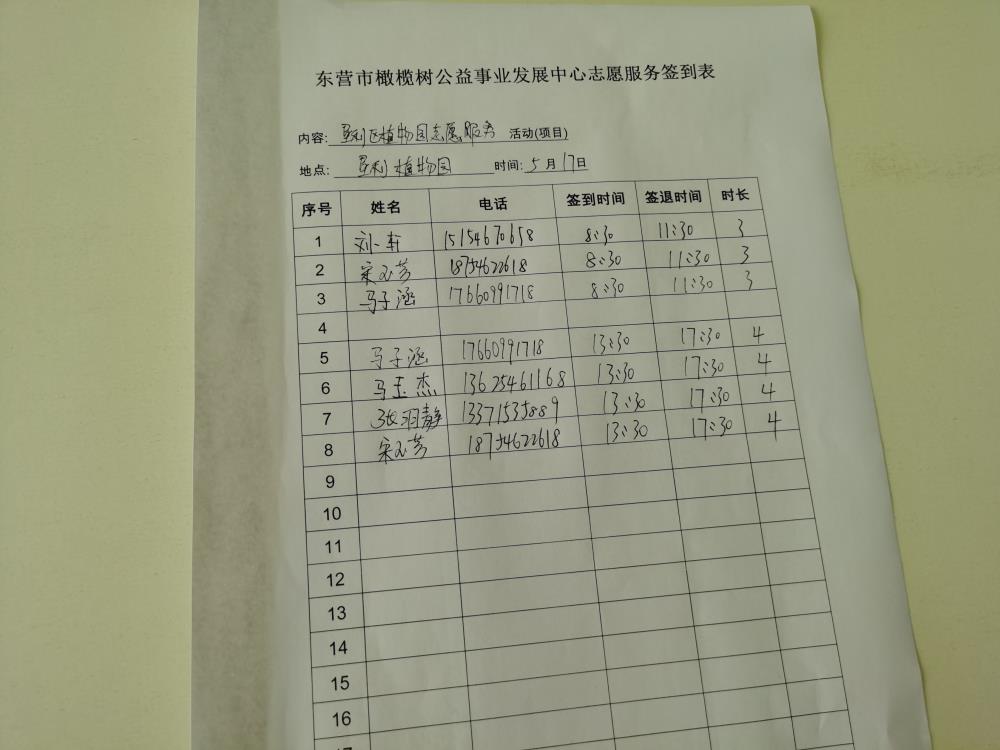 东营市橄榄树公益事业发展中心志愿服务签到表
内容: 垦利区植物园志愿服务 活动(项目)
地点: 垦利植物园 时间: 5月17日
序号 姓名 电话 签到时间 签退时间 时长
1 刘小轩 15154670658 8:30 11:30 3
2 宋玉芳 18754622618 8:30 11:30 3
3 马子涵 17660991718 8:30 11:30 3
4
5 马子涵 17660991718 13:30 17:30 4
6 马玉杰 13625461168 13:30 17:30 4
7 张羽静 13371535889 13:30 17:30 4
8 宋玉芳 18754622618 13:30 17:30 4
9
10
11
12
13
14
15
16